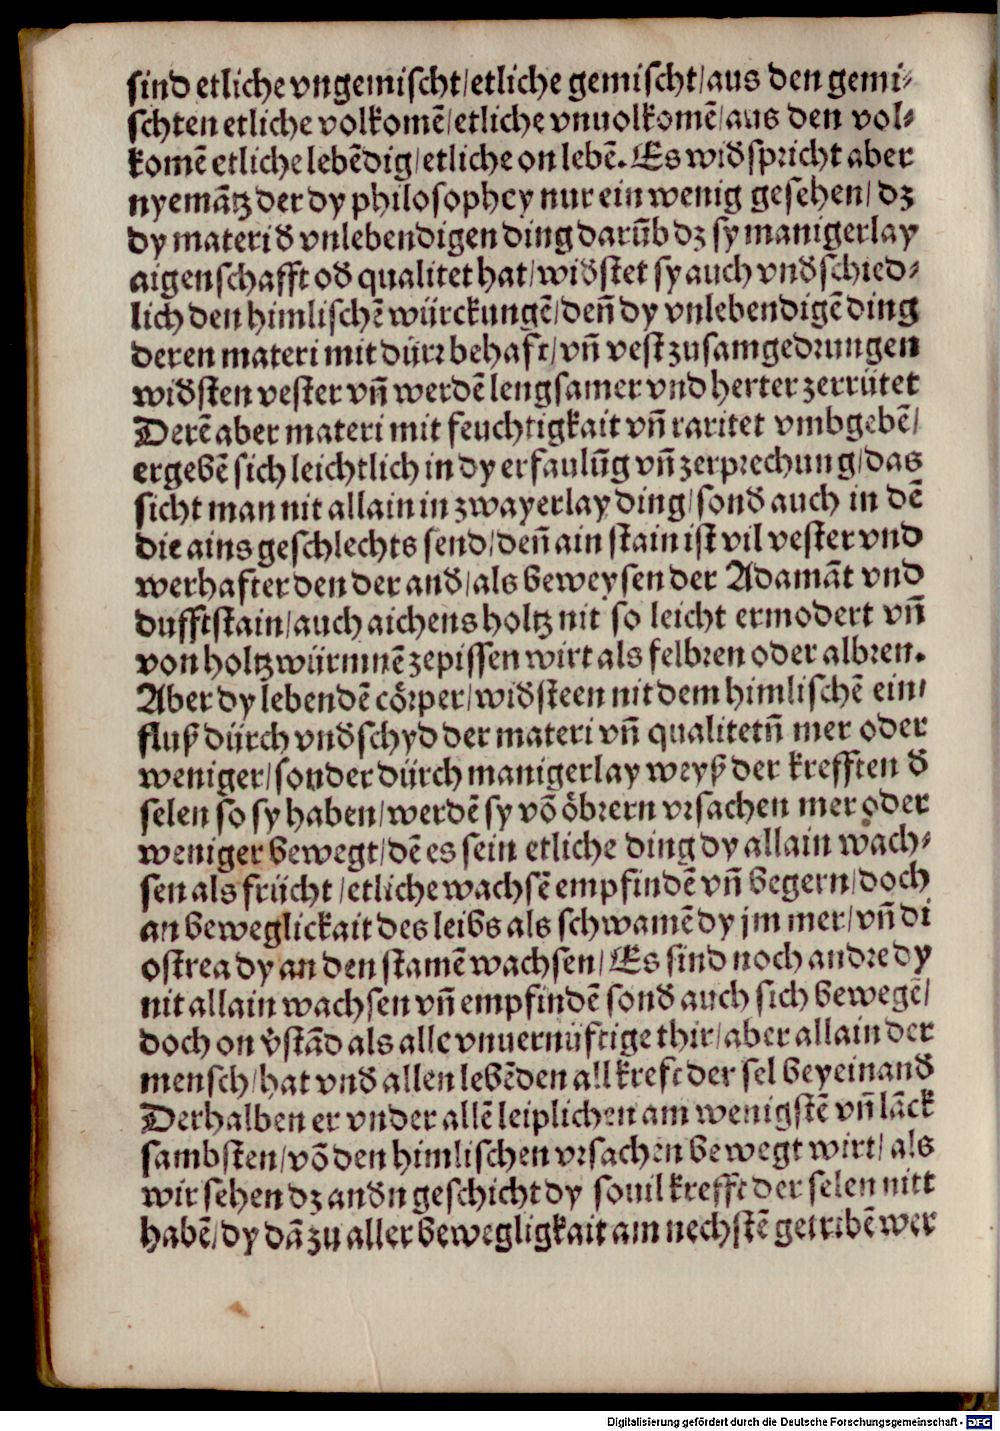 sind etliche vngemischt/etliche gemischt/aus den gemi-
schten etliche volkomē/etliche vnuolkomē/aus den vol-
komē etliche lebēdig/etliche on lebē. Es wiđspricht aber
nyemātz der dy philosophey nur ein wenig gesehen/ dz
dy materi đ vnlebendigen ding darūb dz sy manigerlay
aigenschafft ođ qualitet hat/wiđstet sy auch vnđschied-
lich den himlischē würckungē/den̄ dy vnlebendigē ding
deren materi mit dürr behaft/vn̄ vest zusamgedrungen
wiđsten vester vn̄ werdē lengsamer vnd herter zerrütet
Derē aber materi mit feuchtigkait vn̄ raritet vmbgebē/
ergebē sich leichtlich in dy erfaulūg vn̄ zerprechung/das
sicht man nit allain in zwayerlay ding/sonđ auch in dē
die ains geschlechts send/den̄ ain stain ist vil vester vnd
werhafter den der anđ/als beweysen der Adamāt vnd
dufftstain/auch aichens holtz nit so leicht ermodert vn̄
von holtzwürmnē zepissen wirt als felbren oder albren.
Aber dy lebendē cörper/wiđsteen nit dem himlischē ein-
fluß dürch vnđschyd der materi vn̄ qualitetn̄ mer oder
weniger/sonder dürch manigerlay weyß der krefften đ
selen so sy haben/werdē sy vō öbrern vrsachen mer oder
weniger bewegt/dē es sein etliche ding dy allain wach-
sen als frücht/etliche wachsē empfindē vn̄ begern/doch
an beweglickait des leibs als schwamē dy jm mer/vn̄ di
ostrea dy an den stamē wachsen/Es sind noch andre dy
nit allain wachsen vn̄ empfindē sonđ auch sich bewegē/
doch on v̓stād als alle vnuernüftige thir/aber allain der
mensch/hat vnđ allen lebēden all kreft der sel beyeinanđ
Derhalben er vnder allē leiplichen am wenigstē vn̄ lāck
sambsten/vō den himlischen vrsachen bewegt wirt/als
wir sehen dz anđn geschicht dy souil krefft der selen nitt
habē/dy dā zu aller bewegligkait am nechstē getribē wer
Digitalisierung gefördert durch die Deutsche Forschungsgemeinschaft - DFG